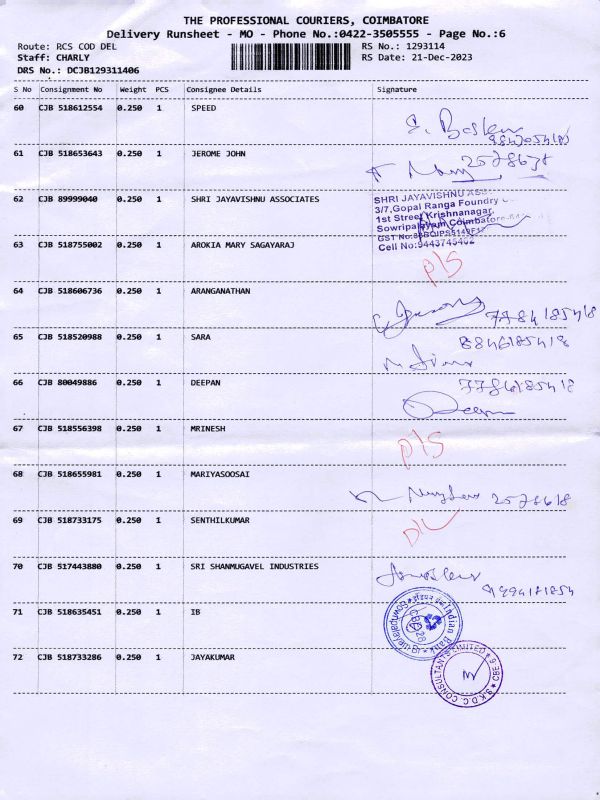 THE PROFESSIONAL COURIERS, COIMBATORE
Delivery Runsheet - MO - Phone No.:0422-3505555 - Page No.:6
Route: RCS COD DEL RS No.: 1293114
Staff: CHARLY RS Date: 21-Dec-2023
DRS No.: DCJB129311406
S No Consignment No Weight PCS Consignee Details Signature
60 CJB 518612554 0.250 1 SPEED
61 CJB 518653643 0.250 1 JEROME JOHN
62 CJB 89999040 0.250 1 SHRI JAYAVISHNU ASSOCIATES
SHRI JAYAVISHNU
3/7,Gopal Ranga Foundry
1st Street Krishnanagar,
Coimbatore
GST No:
Cell No:9443745402
63 CJB 518755002 0.250 1 AROKIA MARY SAGAYARAJ
P/S
64 CJB 518606736 0.250 1 ARANGANATHAN
65 CJB 518520988 0.250 1 SARA
66 CJB 80049886 0.250 1 DEEPAN
67 CJB 518556398 0.250 1 MRINESH P/S
68 CJB 518655981 0.250 1 MARIYASOOSAI
69 CJB 518733175 0.250 1 SENTHILKUMAR
70 CJB 517443880 0.250 1 SRI SHANMUGAVEL INDUSTRIES
71 CJB 518635451 0.250 1 IB
Indian Bank
72 CJB 518733286 0.250 1 JAYAKUMAR
S.K.D.C. CONSULTANTS LIMITED